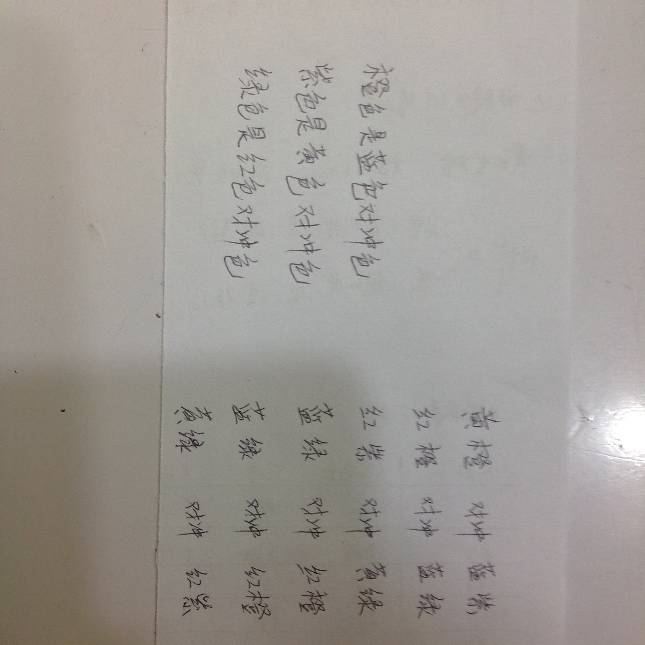 橙色是蓝色对冲色
紫色是黄色对冲色
绿色是红色对冲色
黄橙 对冲 蓝紫
红橙 对冲 蓝绿
红紫 对冲 黄绿
蓝绿 对冲 红橙
蓝绿 对冲 红橙
黄绿 对冲 红紫